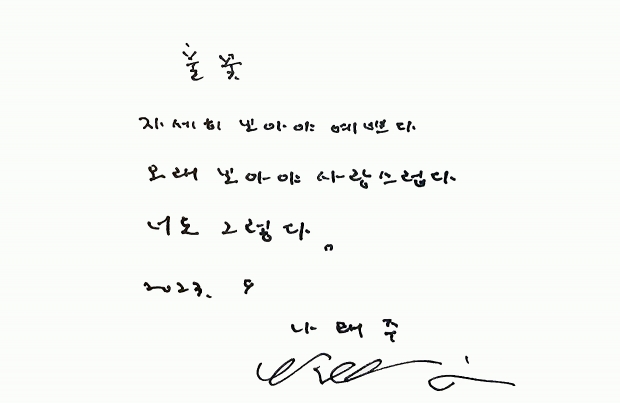 풀꽃
자세히 보아야 예쁘다
오래 보아야 사랑스럽다
너도 그렇다.
2023. 9
나태주